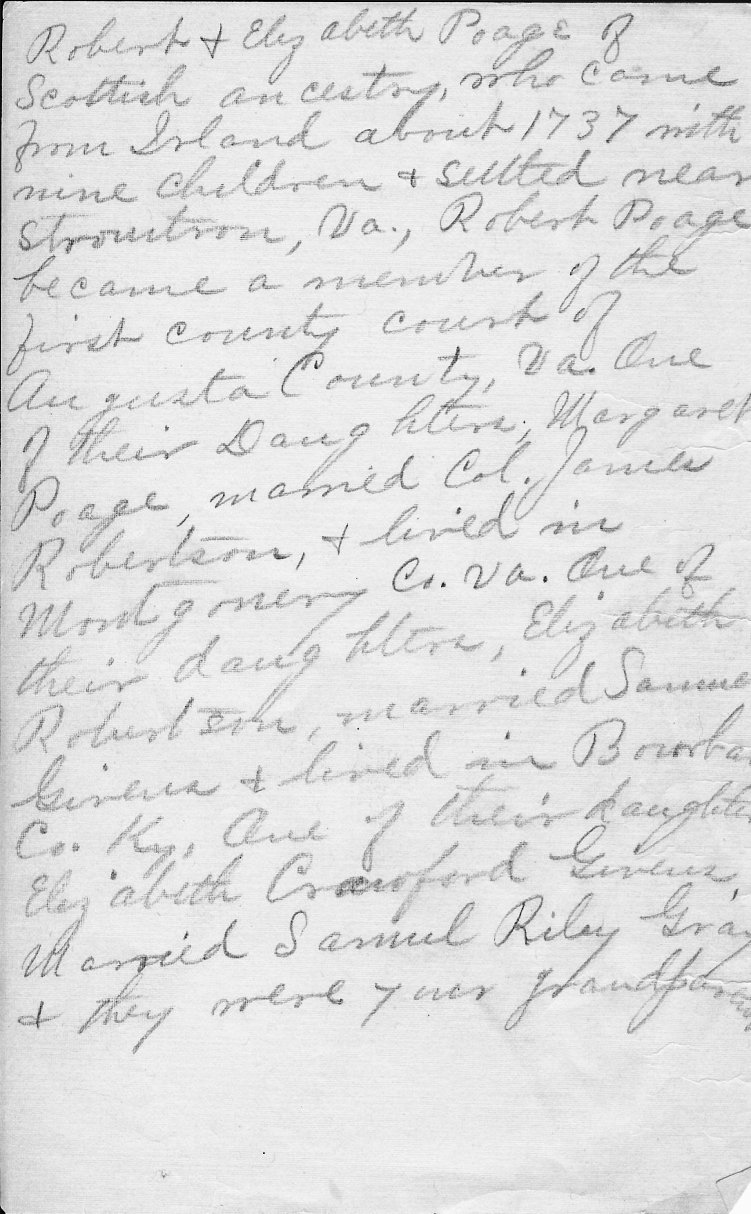 Robert + Elizabeth Poage of
Scottish ancestry, who came
from Irland about 1737 with
nine children + settled near
Strountron, Va., Robert Poage
became a member of the
first county court of
Augusta County, Va. One
of their Daughters, Margaret
Poage, married Col. James
Robertson, + lived in
Montgomery Co. Va. One of
their daughters, Elizabeth
Robertson, married Samue
Givens + lived in Bourba
Co. Ky. One of their daughter
Elizabeth Crawford Givens,
Married Samuel Riley Gray
+ they were your grandparen